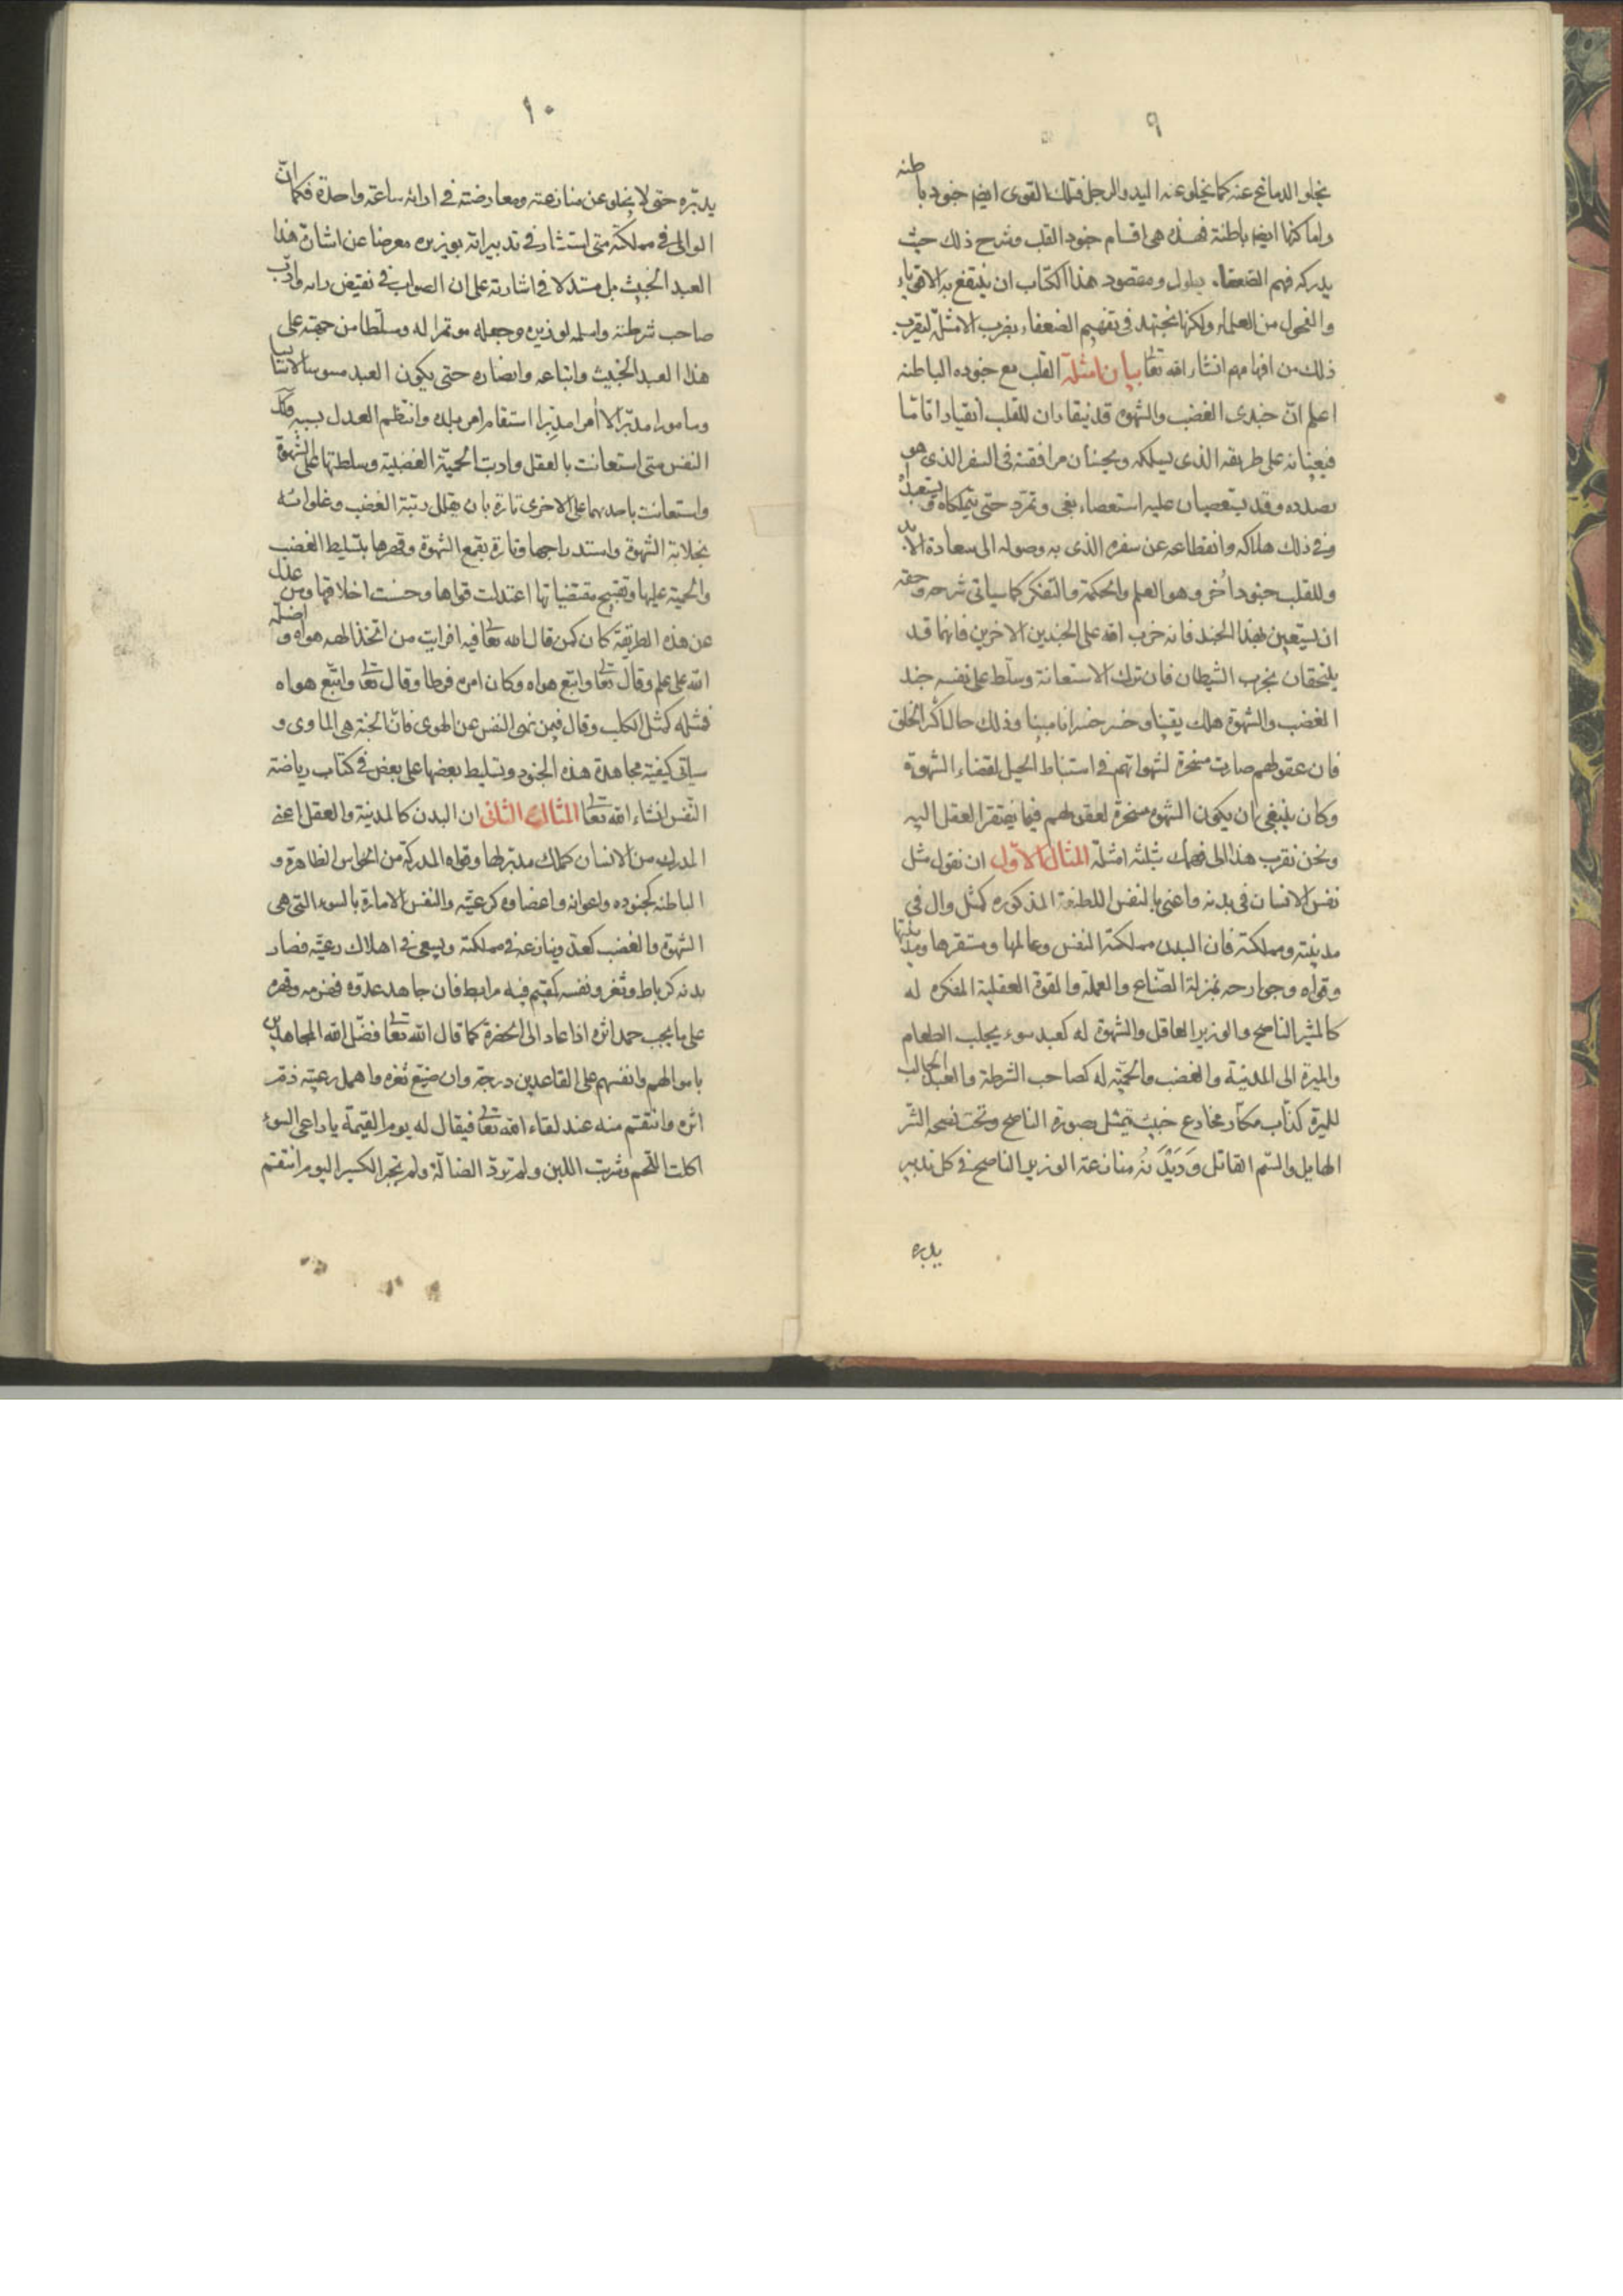 ٩
يخلو الدماغ عنه كما يخلو عنه اليد والرجل فتلك القوى ايضا جنود باطنه
واماكنها ايضا باطنة فهذه هى اقسام جنود القلب وشرح ذلك حيث
يدركه فهم الضعفاء يطول ومقصود هذا الكتاب ان ينتفع به الاقوياء
والفحول من العلماء ولكنا نجتهد فى تفهيم الضعفاء بضرب الامثلة ليقرب
ذلك من افهامهم انشاء الله تعا بيان امثلة القلب مع جنوده الباطنه
اعلم انّ جندى الغضب والشهوة قد ينقادان للقلب انقيادا تامّا
فيعينانه على طريقه الذى يسلكه ويحسنان مرافقته فى السفر الذى هو
بصدده وقد يستعصيان عليه استعصاء بغى وتمرّد حتى يتملكاه ويستعبداه
وفى ذلك هلاكه وانقطاعه عن سفره الذى به وصوله الى سعادة الابد
وللقلب جنود اُخر وهو العلم والحكمة والتفكر كما سياتى شرحه وحقه
ان يستعين بهذا الجند فانه حزب الله على الجندين الاخرين فانهما قد
يلتحقان بحزب الشيطان فان ترك الاستعانة وسلّط على نفسه جند
الغضب والشهوة هلك يقينا وخسر خسرانا مبينا وذلك حال اكثر الخلق
فان عقولهم صارت مسخرة لشهواتهم فى استنباط الحيل لقضاء الشهوة
وكان ينبغى ان يكون الشهوة مسخرة لعقولهم فيما يفتقر العقل اليه
ونحن نقرب هذا الى فهمك بثلثه امثلة المثال الاوّل ان نقول مثل
نفس الانسان فى بدنه واعنى بالنفس اللطيفة المذكوره كمثل وال فى
مدينته ومملكته فان البدن مملكة النفس وعالمها ومستقرها ومدينتها
وقواه وجوارحه بمنزلة الصنّاع والعملة والقوة العقلية المفكره له
كالمشير الناصح والوزير العاقل والشهوة له كعبد سوء يجلب الطعام
والميرة الى المدينة والغضب والحميّة له كصاحب الشرطة والعبد الجالب
للميرة كذّاب مكّار مخادع خبيث يتمثل بصورة الناصح وتحت نصحه الشّر
الهايل والسّم القاتل وَدَيْدَنُهُ منازعة الوزير الناصح فى كل تدبير
يدبره
١٠
يدبّره حتى لا يخلو عن منازعته ومعارضته فى ارائه ساعة واحدة فكما انّ
الوالى فى مملكته متى استشار فى تدبيراته بوزيره معرضا عن اشارة هذا
العبد الخبيث بل مستدلا فى اشارته على ان الصواب فى نقيض رايه وادّب
صاحب شرطته واسلمه لوزيره وجعله موتمرا له وسلّطا من جهته على
هذا العبد الخبيث واتباعه وانصاره حتى يكون العبد مسوسا لا سايسا
ومامورا مدبّرا لا اٰمرا مدبِّرا استقام امر بلده وانتظم العدل بسببه فكذا
النفس متى استعانت بالعقل وادبت الحميّة الغضبية وسلطتها على الشهوة
واستعانت باحديهما على الاخرى تارة بان يقلل رتبة الغضب وغلوائه
بخلابة الشهوة واستدراجها وتارة بقمع الشهوة وقهرها بتسليط الغضب
والحمية عليها وتقبيح مقتضياتها اعتدلت قواها وحسنت اخلاقها ومن عدل
عن هذه الطريقة كان كمن قال الله تعا فيه افرايت من اتخذ الهه هواه واضلّه
الله على علم وقال تعا واتبع هواه وكان امره فرطا وقال تعا واتّبع هواه
فمثله كمثل الكلب وقال فيمن نهى النفس عن الهوى فانّ الجنة هى الماوى و
سياتى كيفية مجاهدة هذه الجنود وتسليط بعضها على بعض فى كتاب رياضة
النّفس انشاء الله تعا المثال الثانى ان البدن كالمدينة والعقل اعنى
المدرك من الانسان كملك مدبّر لها وقواه المدركة من الحواس الظاهرة و
الباطنه كجنوده واعوانه واعضاوه كرعيّته والنفس الامارة بالسوء التى هى
الشهوة والغضب كعدوّ ينازعه فى مملكته ويسعى فى اهلاك رعيّته فصار
بدنه كرباط وثغر ونفسه كمقيم فيه مرابط فان جاهد عدوّه فهزمه وقهره
على ما يجب حمد اثره اذا عاد الى الحضرة كما قال الله تعا فضّل الله المجاهدين
باموالهم وانفسهم على القاعدين درجة وان ضيّع ثغره واهمل رعيّته ذمّ
اثره وانتقم منه عند لقاء الله تعا فيقال له يوم القيمة يا راعى السوء
اكلت اللحم وشربت اللبن ولم تردّ الضالّة ولم تجبر الكسير اليوم انتقم